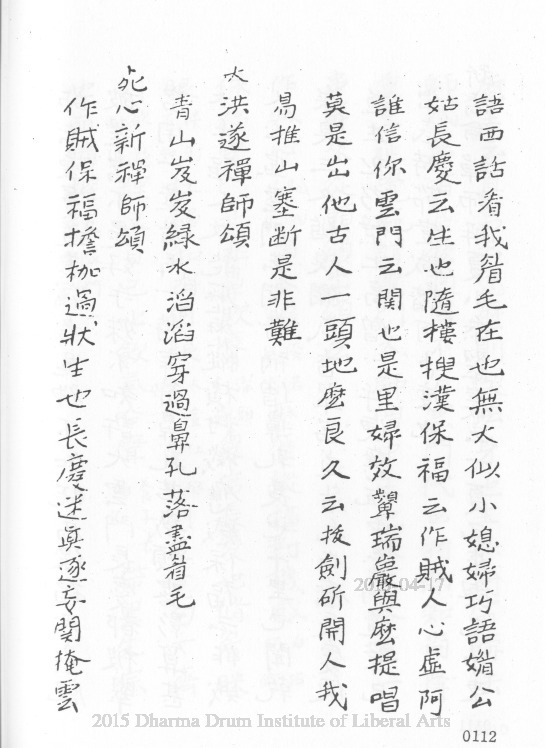 語西話看我眉毛在也無大似小媳婦巧語媚公
姑長慶云生也隨摟搜漢保福云作賊人心虛阿
誰信你雲門云関也是里婦效顰瑞巖與麼提唱
莫是出他古人一頭地麼良久云拔劍斫開人我
易推山塞断是非難
大洪遂禪師頌
青山岌岌緑水滔滔穿過鼻孔落盡眉毛
死心新禪師頌
作賊保福擔枷過狀生也長慶迷真逐妄関掩雲
2015-04-17
2015 Dharma Drum Institute of Liberal Arts
0112